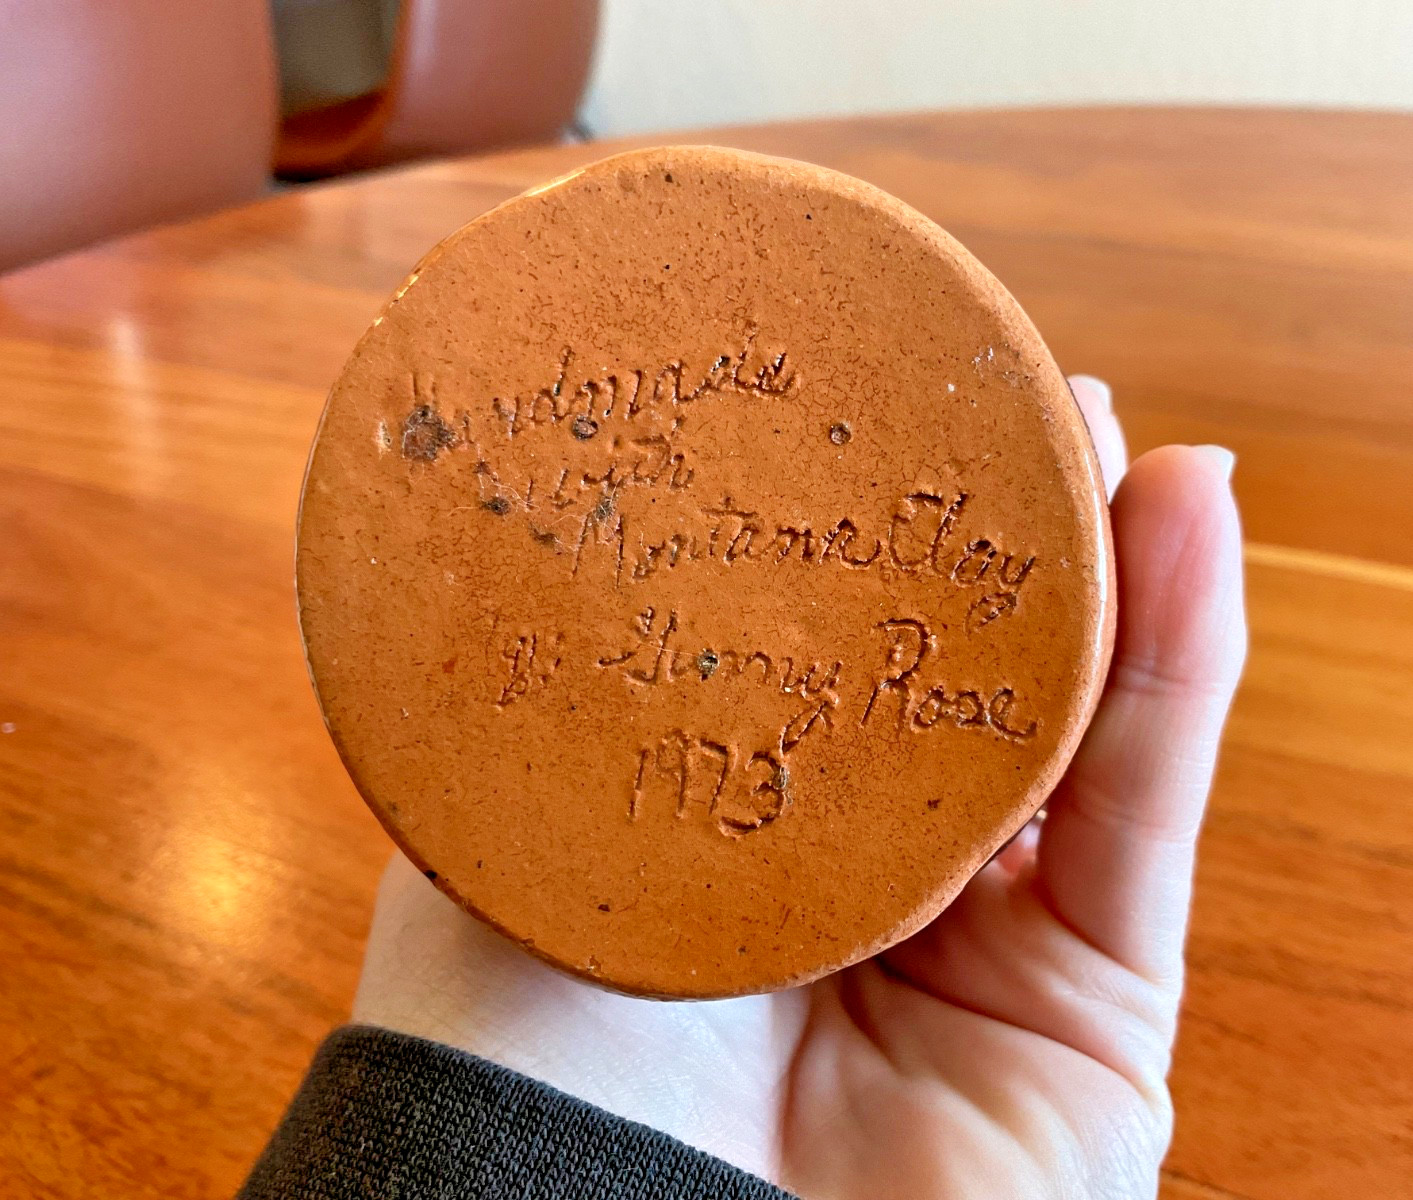 Handmade
with
Montana Clay
Rose
1973